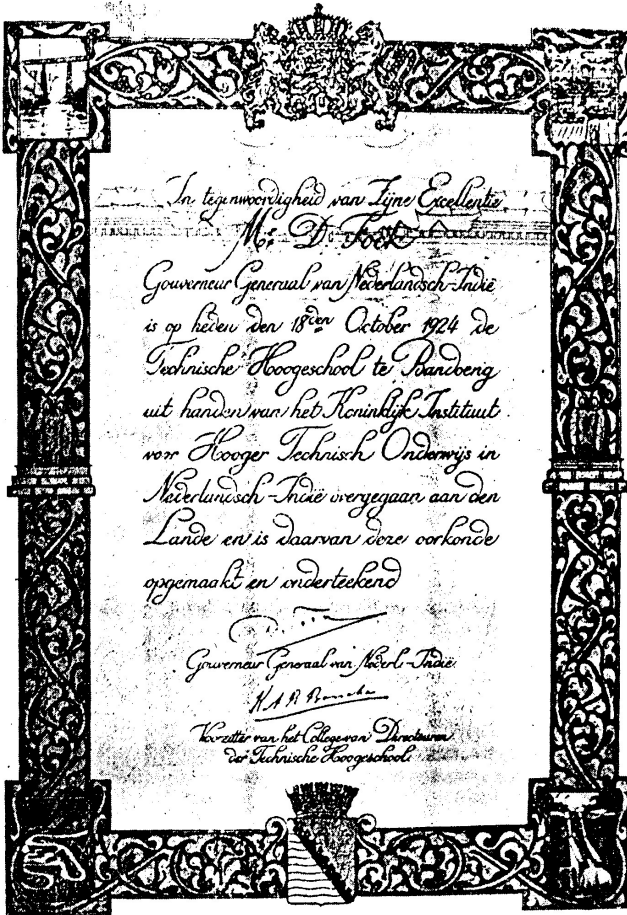 In tegenwoordigheid van Zijne Excellentie
Mr. D. Fock
Gouverneur Generaal van Nederlandsch-Indië
is op heden den 18den October 1924 de
Technische Hoogeschool te Bandoeng
uit handen van het Koninklijk Instituut
voor Hooger Technisch Onderwijs in
Nederlandsch-Indië overgegaan aan den
Lande en is daarvan deze oorkonde
opgemaakt en onderteekend
Gouverneur Generaal van Nederl.-Indië
K A R Bosscha
Voorzitter van het College van Directeuren
der Technische Hoogeschool